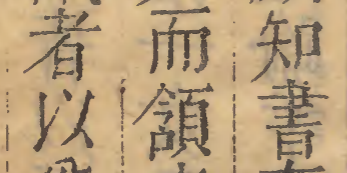 知書
而頷
者以